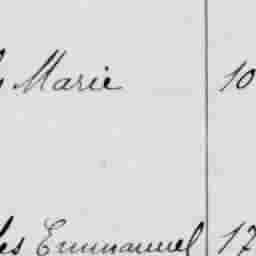 Marie 10
les Emmanuel 17